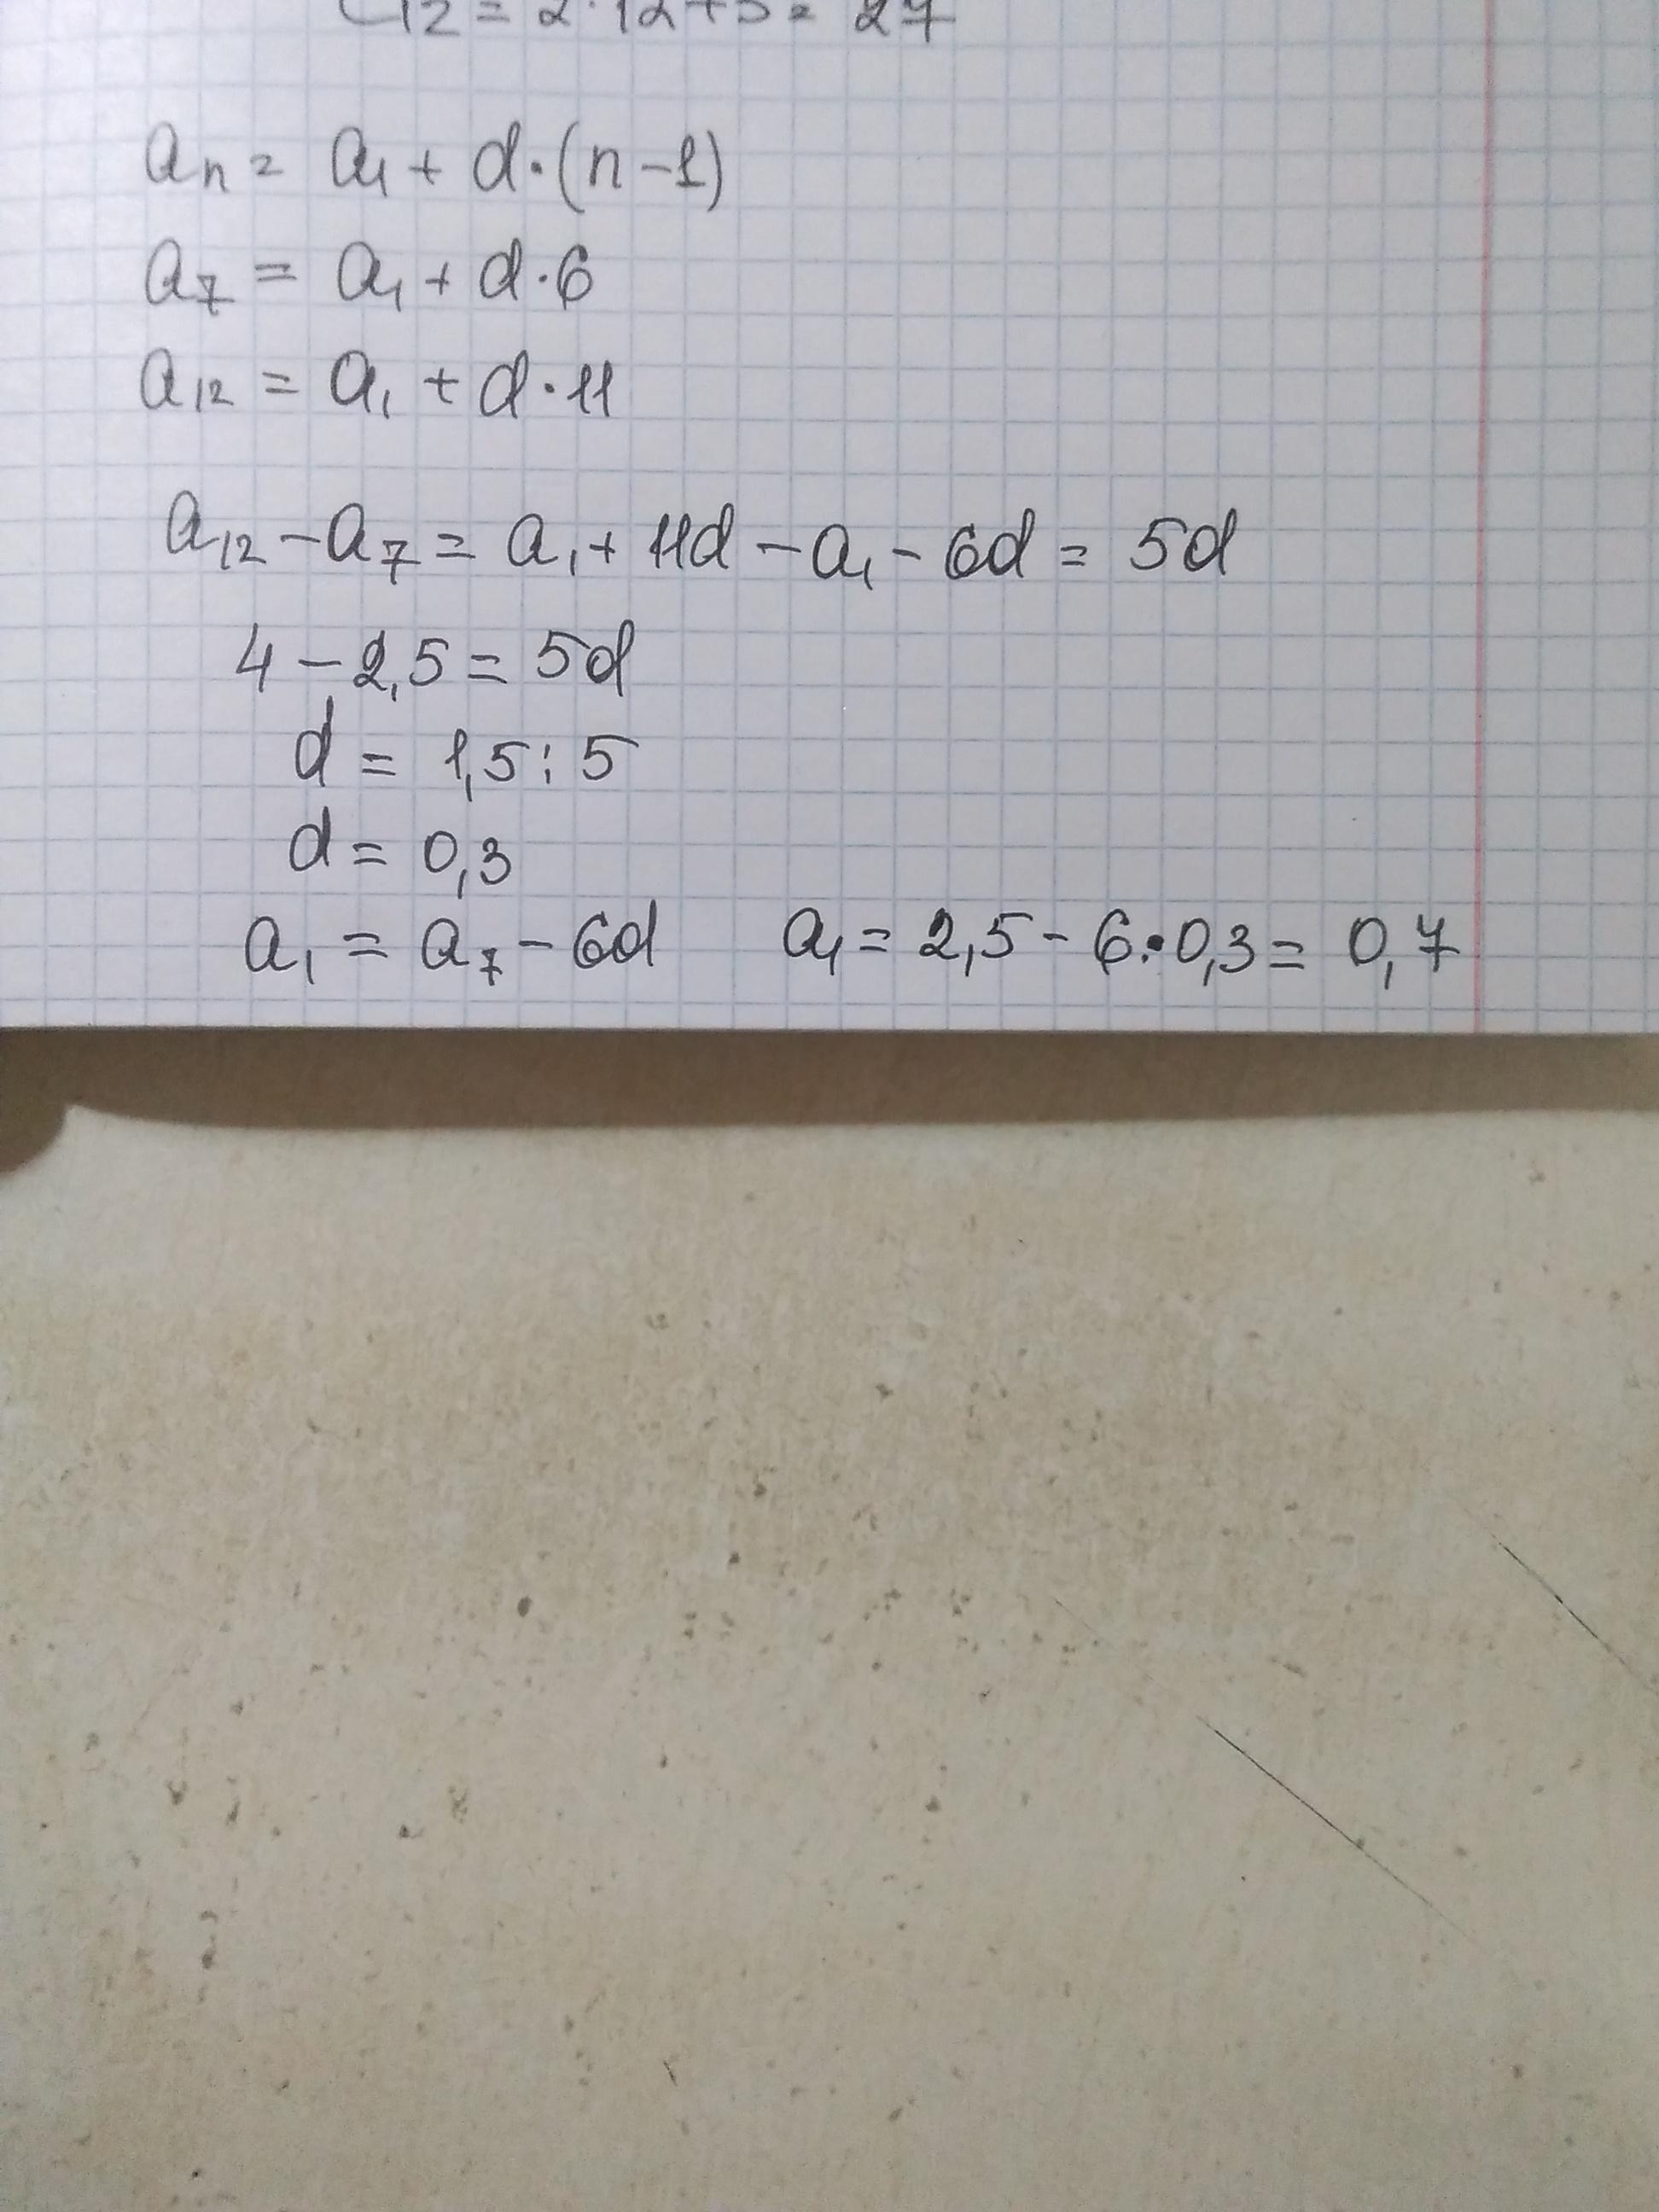 12 = 2·12+3 = 27
aₙ = a₁ + d·(n-1)
a₇ = a₁ + d·6
a₁₂ = a₁ + d·11
a₁₂ - a₇ = a₁ + 11d - a₁ - 6d = 5d
4 - 2,5 = 5d
d = 1,5 : 5
d = 0,3
a₁ = a₇ - 6d a₁ = 2,5 - 6·0,3 = 0,7